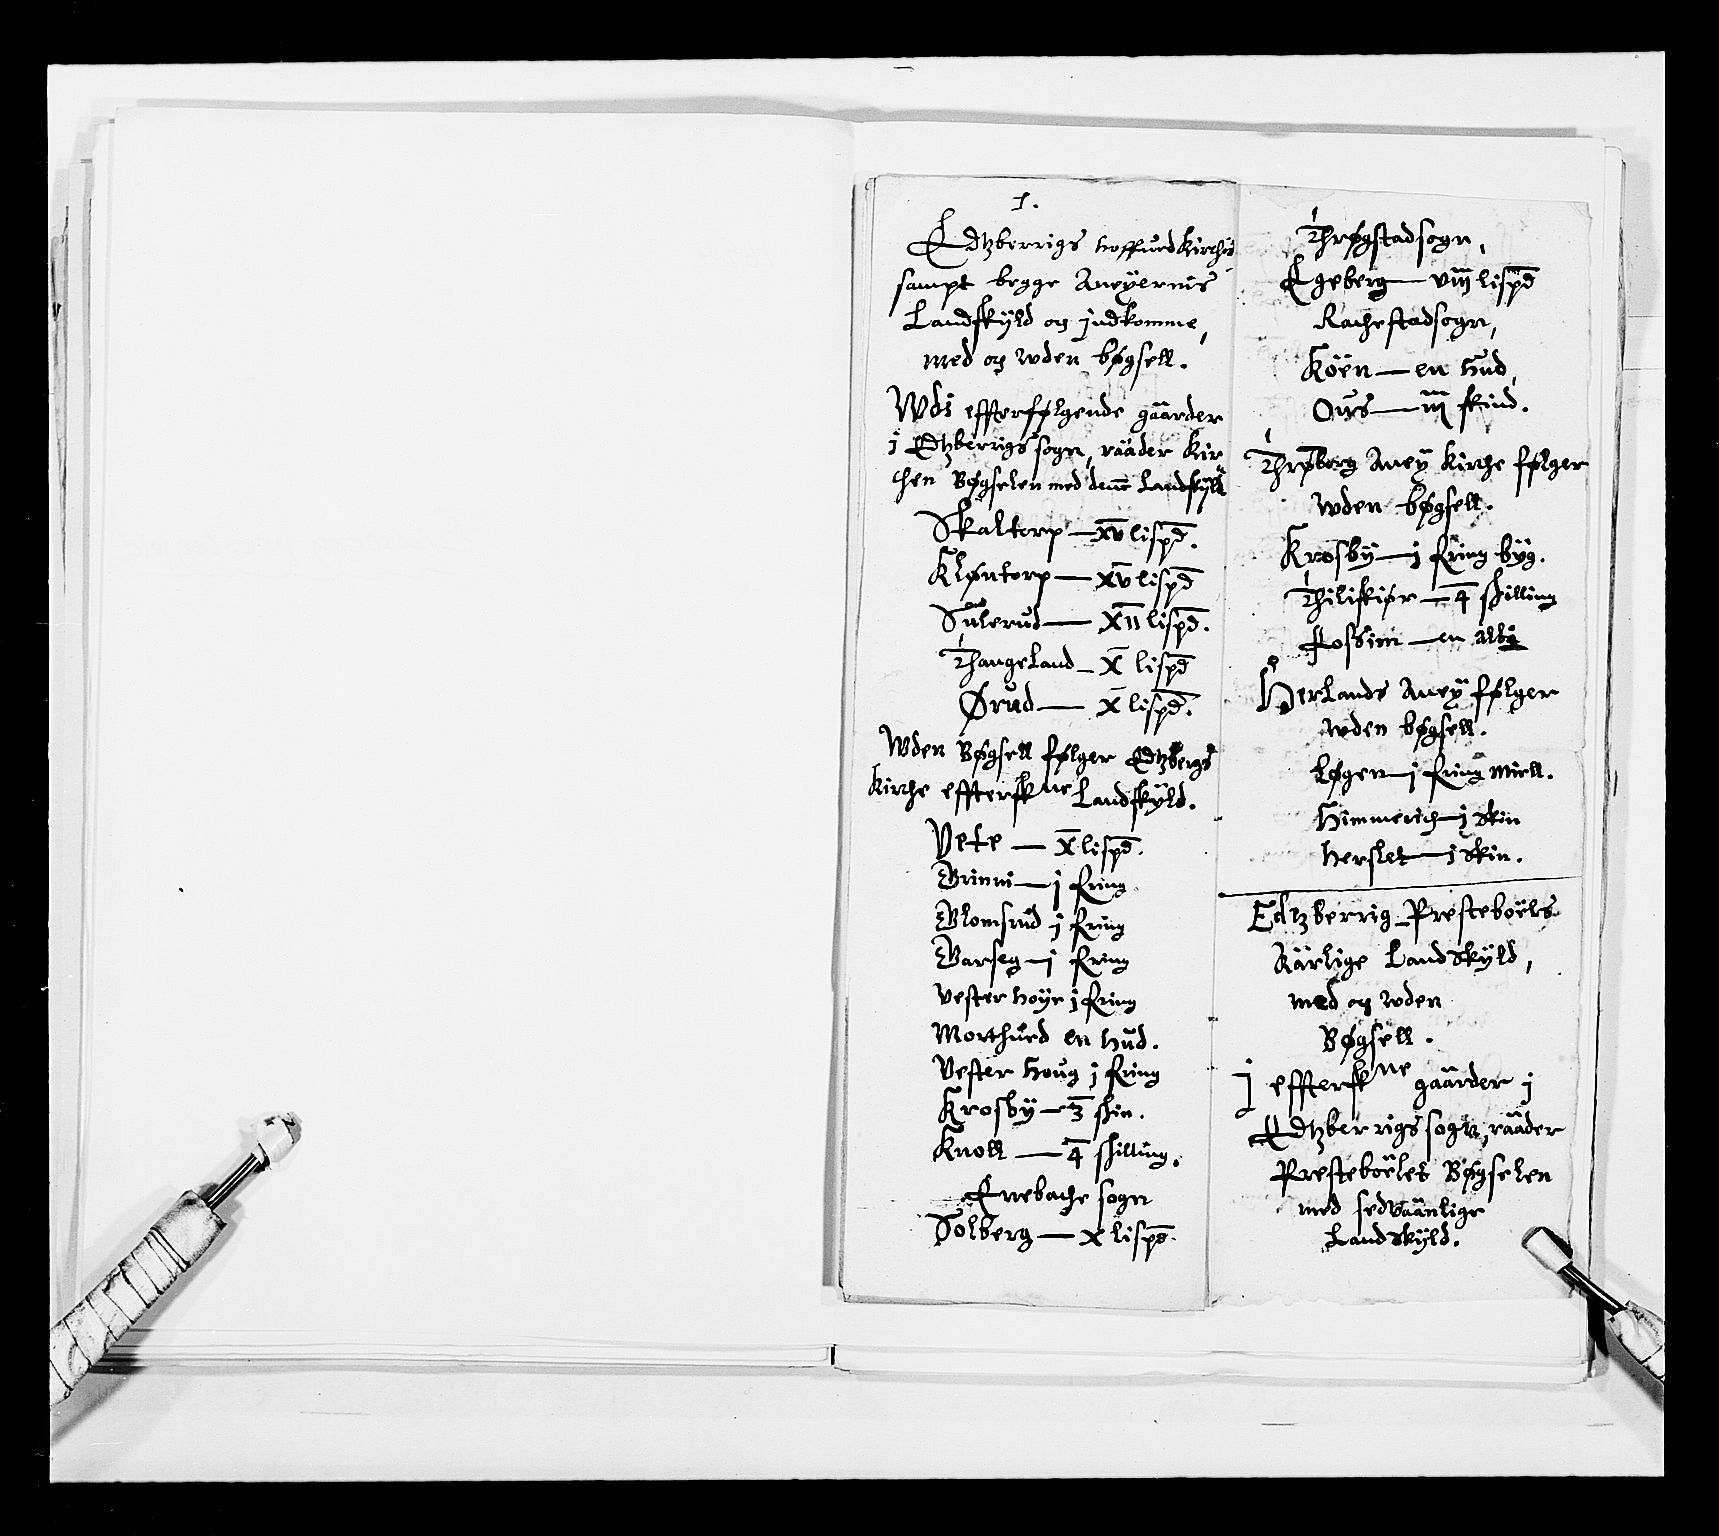 1.
Edtzberrigs hoffuedKirchis
sampt begge Anexernis
Landskÿld og jndkomme,
med og wden bøgsell.
Wdi effterfølgende gaarder
i Edtzberrigs sogn, raader Kir
chen Bøgselen med denne Landskÿld
Skaltorp — xv lispd.
Kløntorp — xv lispd
Sulerud — xii lispd.
Thangeland — x lispd
Ørud — x lispd.
Wden Bøgsell følger Edtzbergs
Kirche effterskne Landskÿld.
Vete — x lispd.
Grinni — j fring
Blomsrud j fring
Barseg — j fring
vester høÿe j fring
Morthued en hud.
Vester houg j fring
Krosbÿ — 3 skin.
Knoll — 4 skilling.
Enebache sogn
Solberg — x lispd.
Thrøgstad sogn,
Egeberg — viij lispd
Rachestad sogn,
Köen — en hud,
Ous — iij skind.
Thrøborg Anex Kirche følger
wden bøgsell.
Krosbÿ — j fring bÿg.
Thiliskiør — 4 skilling
Fossim — en
Herlands Anex følger
wden bøgsell.
Løgen — j fring miell.
Himmerich — j skin
herslet — j skin.
Edtzberrig Presteboëls
Aarlige Landskÿld,
med og wden
Bøgsell.
J effterskne gaarder j
Edtzberrigs sogn, raader
Presteboëlet Bøgselen
med sedvaanlige
Landskÿld.